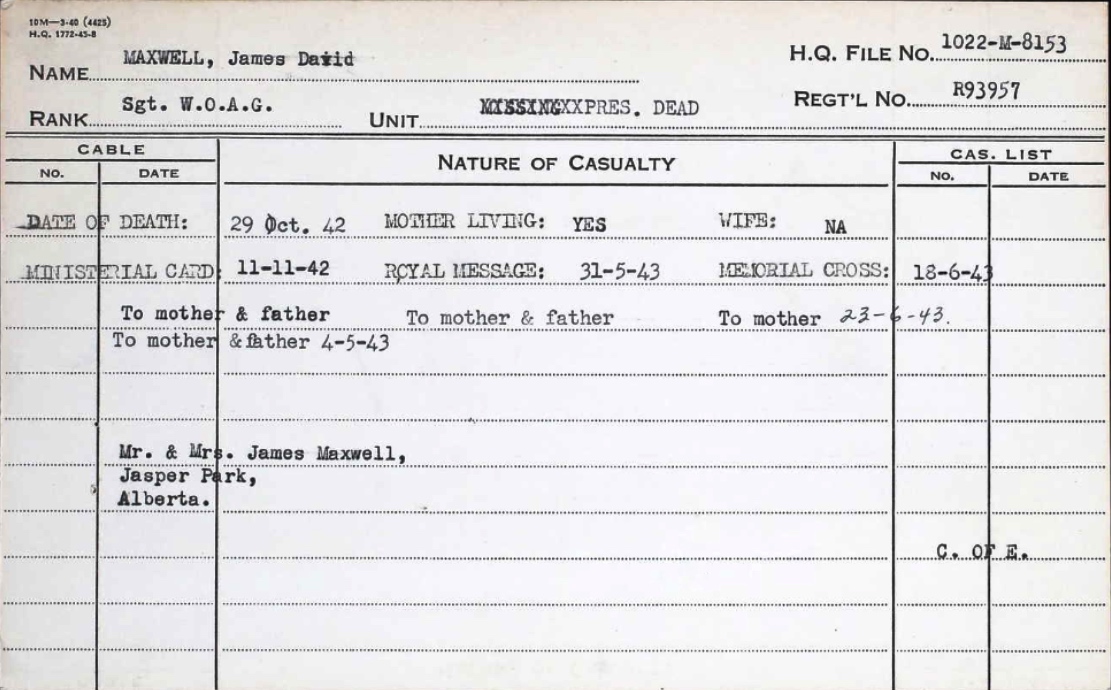 10M—3-40 (4425)
H.Q. 1772-45-8
NAME MAXWELL, James David
H.Q. FILE NO. 1022-M-8153
RANK Sgt. W.O.A.G.
UNIT MISSINGXXPRES. DEAD
REGT'L NO. R93957
CABLE
NATURE OF CASUALTY
CAS. LIST
NO. DATE
NO. DATE
DATE OF DEATH: 29 Oct. 42 MOTHER LIVING: YES WIFE: NA
MINISTERIAL CARD: 11-11-42 ROYAL MESSAGE: 31-5-43 MEMORIAL CROSS: 18-6-43
To mother & father To mother & father To mother 23-6-43.
To mother &father 4-5-43
Mr. & Mrs. James Maxwell,
Jasper Park,
Alberta.
C. OF E.